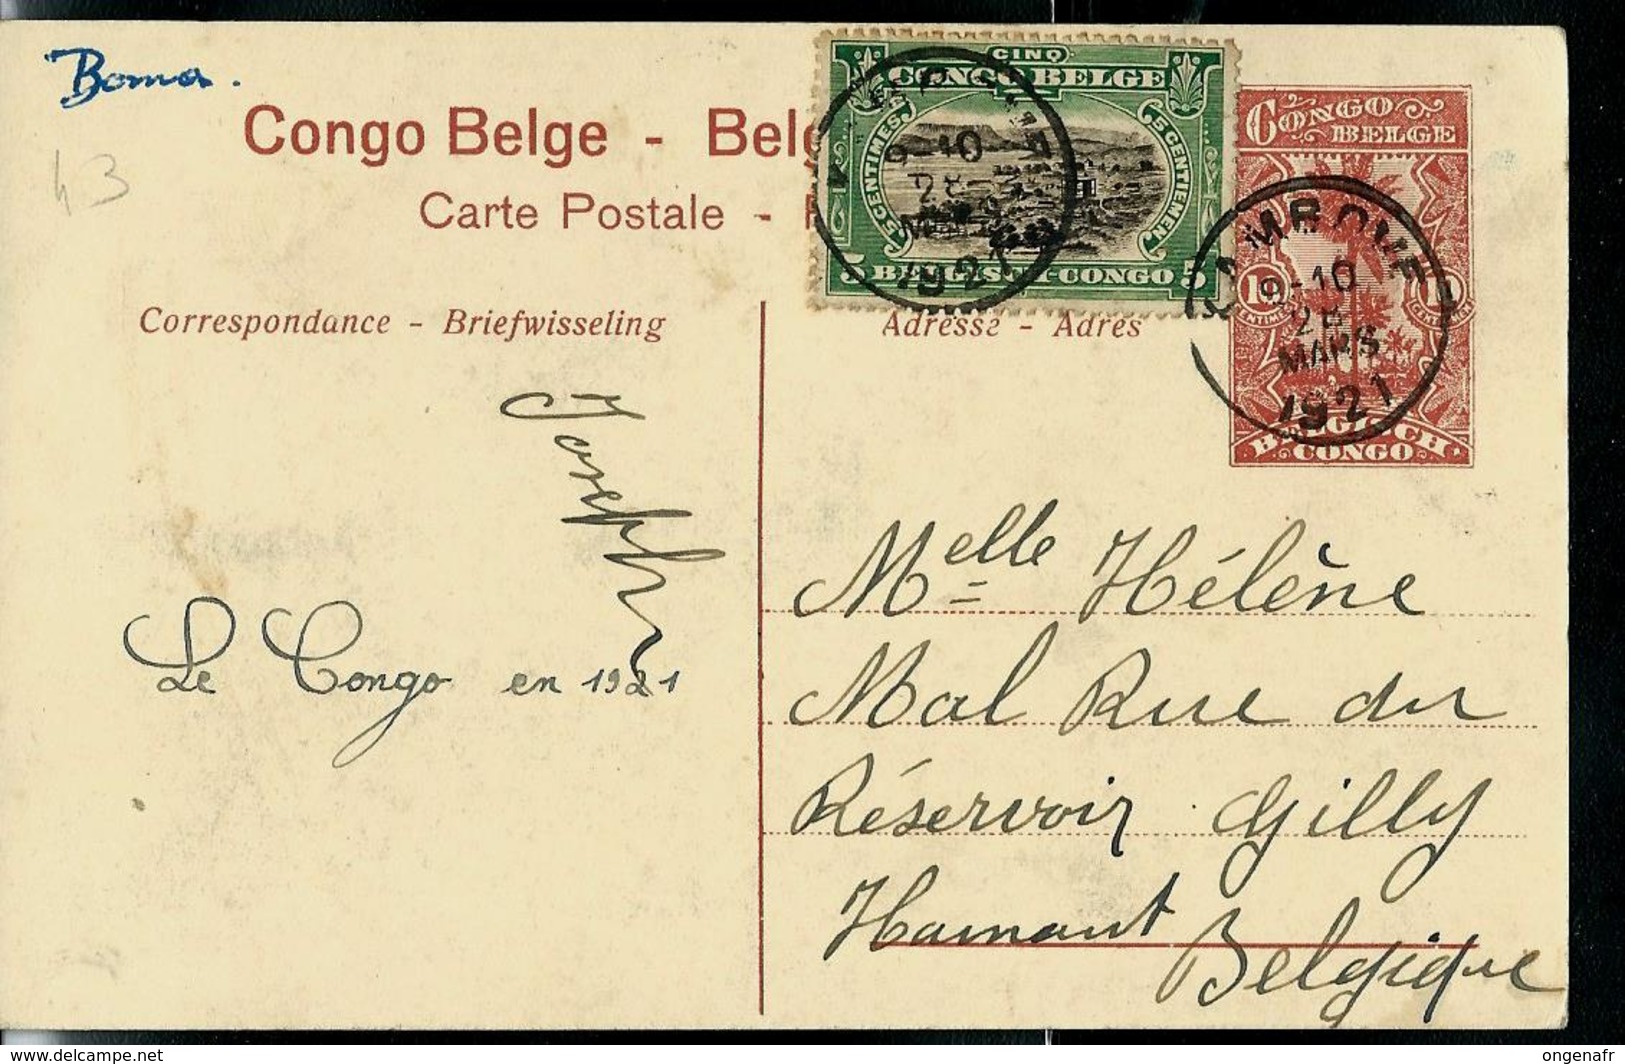 Boma.
43
Congo Belge - Belg
Carte Postale -
CINQ
CONGO BELGE
5 CENTIMES
5 CENTIEMEN.
5 BELGISCH-CONGO 5
9-10
28
MARS
1921
CONGO
BELGE
9-10
28
MARS
1921
BELGISCH
CONGO
Correspondance - Briefwisseling
Adresse - Adres
Joseph
Le Congo en 1921
Melle Hélène
Mal Rue du
Réservoir Gilly
Hamaut
Belgique
delcampe.net
ongenafr